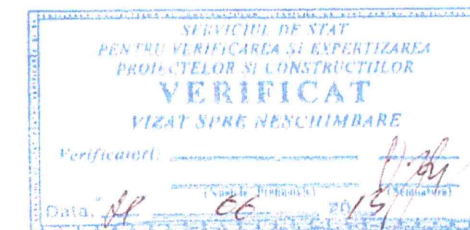 SERVICIUL DE STAT
PENTRU VERIFICAREA SI EXPERTIZAREA
PROIECTELOR SI CONSTRUCTIILOR
VERIFICAT
VIZAT SPRE NESCHIMBARE
Verificatori:
(Semnatura)
Data. 06 2015